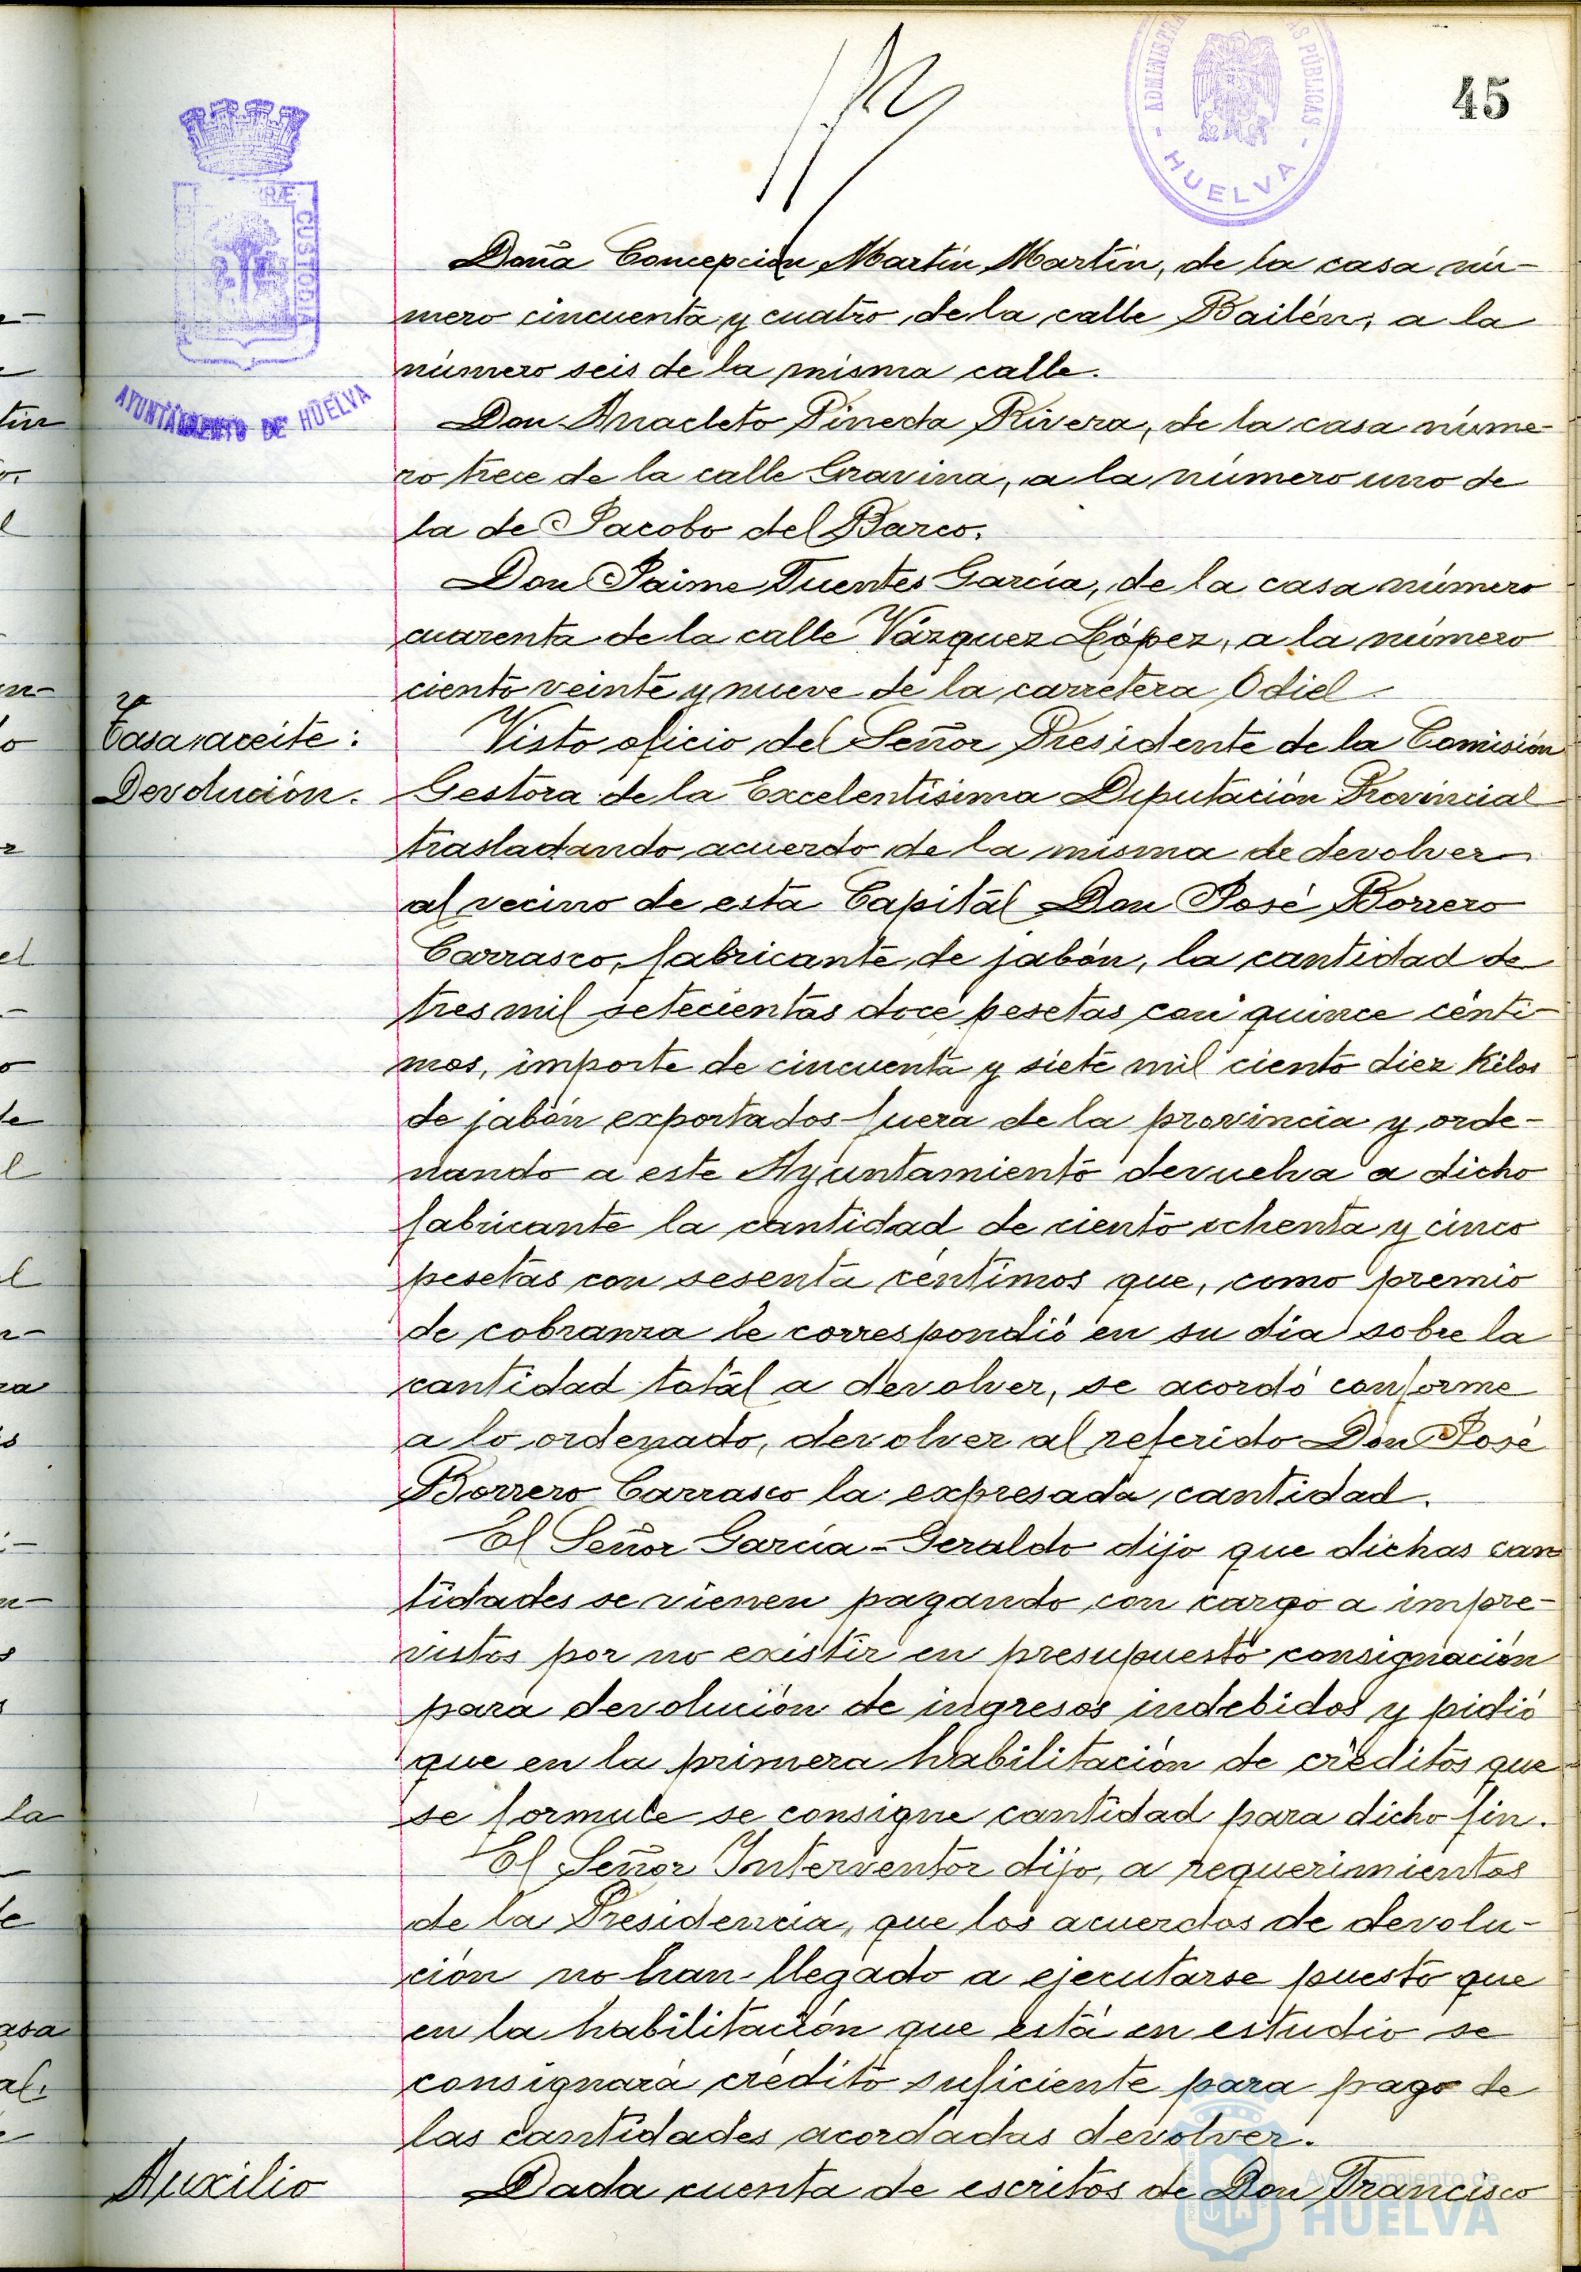 45
ADMINISTRA
AS PÚBLICAS
- HUELVA -
RÆ CUSTODIA
AYUNTAMIENTO DE HUELVA
Doña Concepción Martín Martín, de la casa nú-
mero cincuenta y cuatro de la calle Bailén, a la
número seis de la misma calle.
Don Anacleto Pineda Rivera, de la casa núme-
ro trece de la calle Gravina, a la número uno de
la de Jacobo del Barco.
Don Jaime Fuentes García, de la casa número
cuarenta de la calle Vázquez López, a la número
ciento veinte y nueve de la carretera Odiel.
Tasa aceite:
Devolución.
Visto oficio del Señor Presidente de la Comisión
Gestora de la Excelentísima Diputación Provincial
trasladando acuerdo de la misma de devolver
al vecino de esta Capital Don José Borrero
Carrasco, fabricante de jabón, la cantidad de
tres mil setecientas doce pesetas con quince cénti-
mos, importe de cincuenta y siete mil ciento diez Kilos
de jabón exportados fuera de la provincia y orde-
nando a este Ayuntamiento devuelva a dicho
fabricante la cantidad de ciento ochenta y cinco
pesetas con sesenta céntimos que, como premio
de cobranza le correspondió en su día sobre la
cantidad total a devolver, se acordó conforme
a lo ordenado, devolver al referido Don José
Borrero Carrasco la expresada cantidad.
El Señor García-Geraldo dijo que dichas can
tidades se vienen pagando con cargo a impre-
vistos por no existir en presupuesto consignación
para devolución de ingresos indebidos y pidió
que en la primera habilitación de créditos que
se formule se consigne cantidad para dicho fin.
El Señor Interventor dijo, a requerimientos
de la Presidencia, que los acuerdos de devolu-
ción no han llegado a ejecutarse puesto que
en la habilitación que está en estudio se
consignará crédito suficiente para pago de
las cantidades acordadas devolver.
Auxilio
Dada cuenta de escritos de Don Francisco
Ayuntamiento de
HUELVA